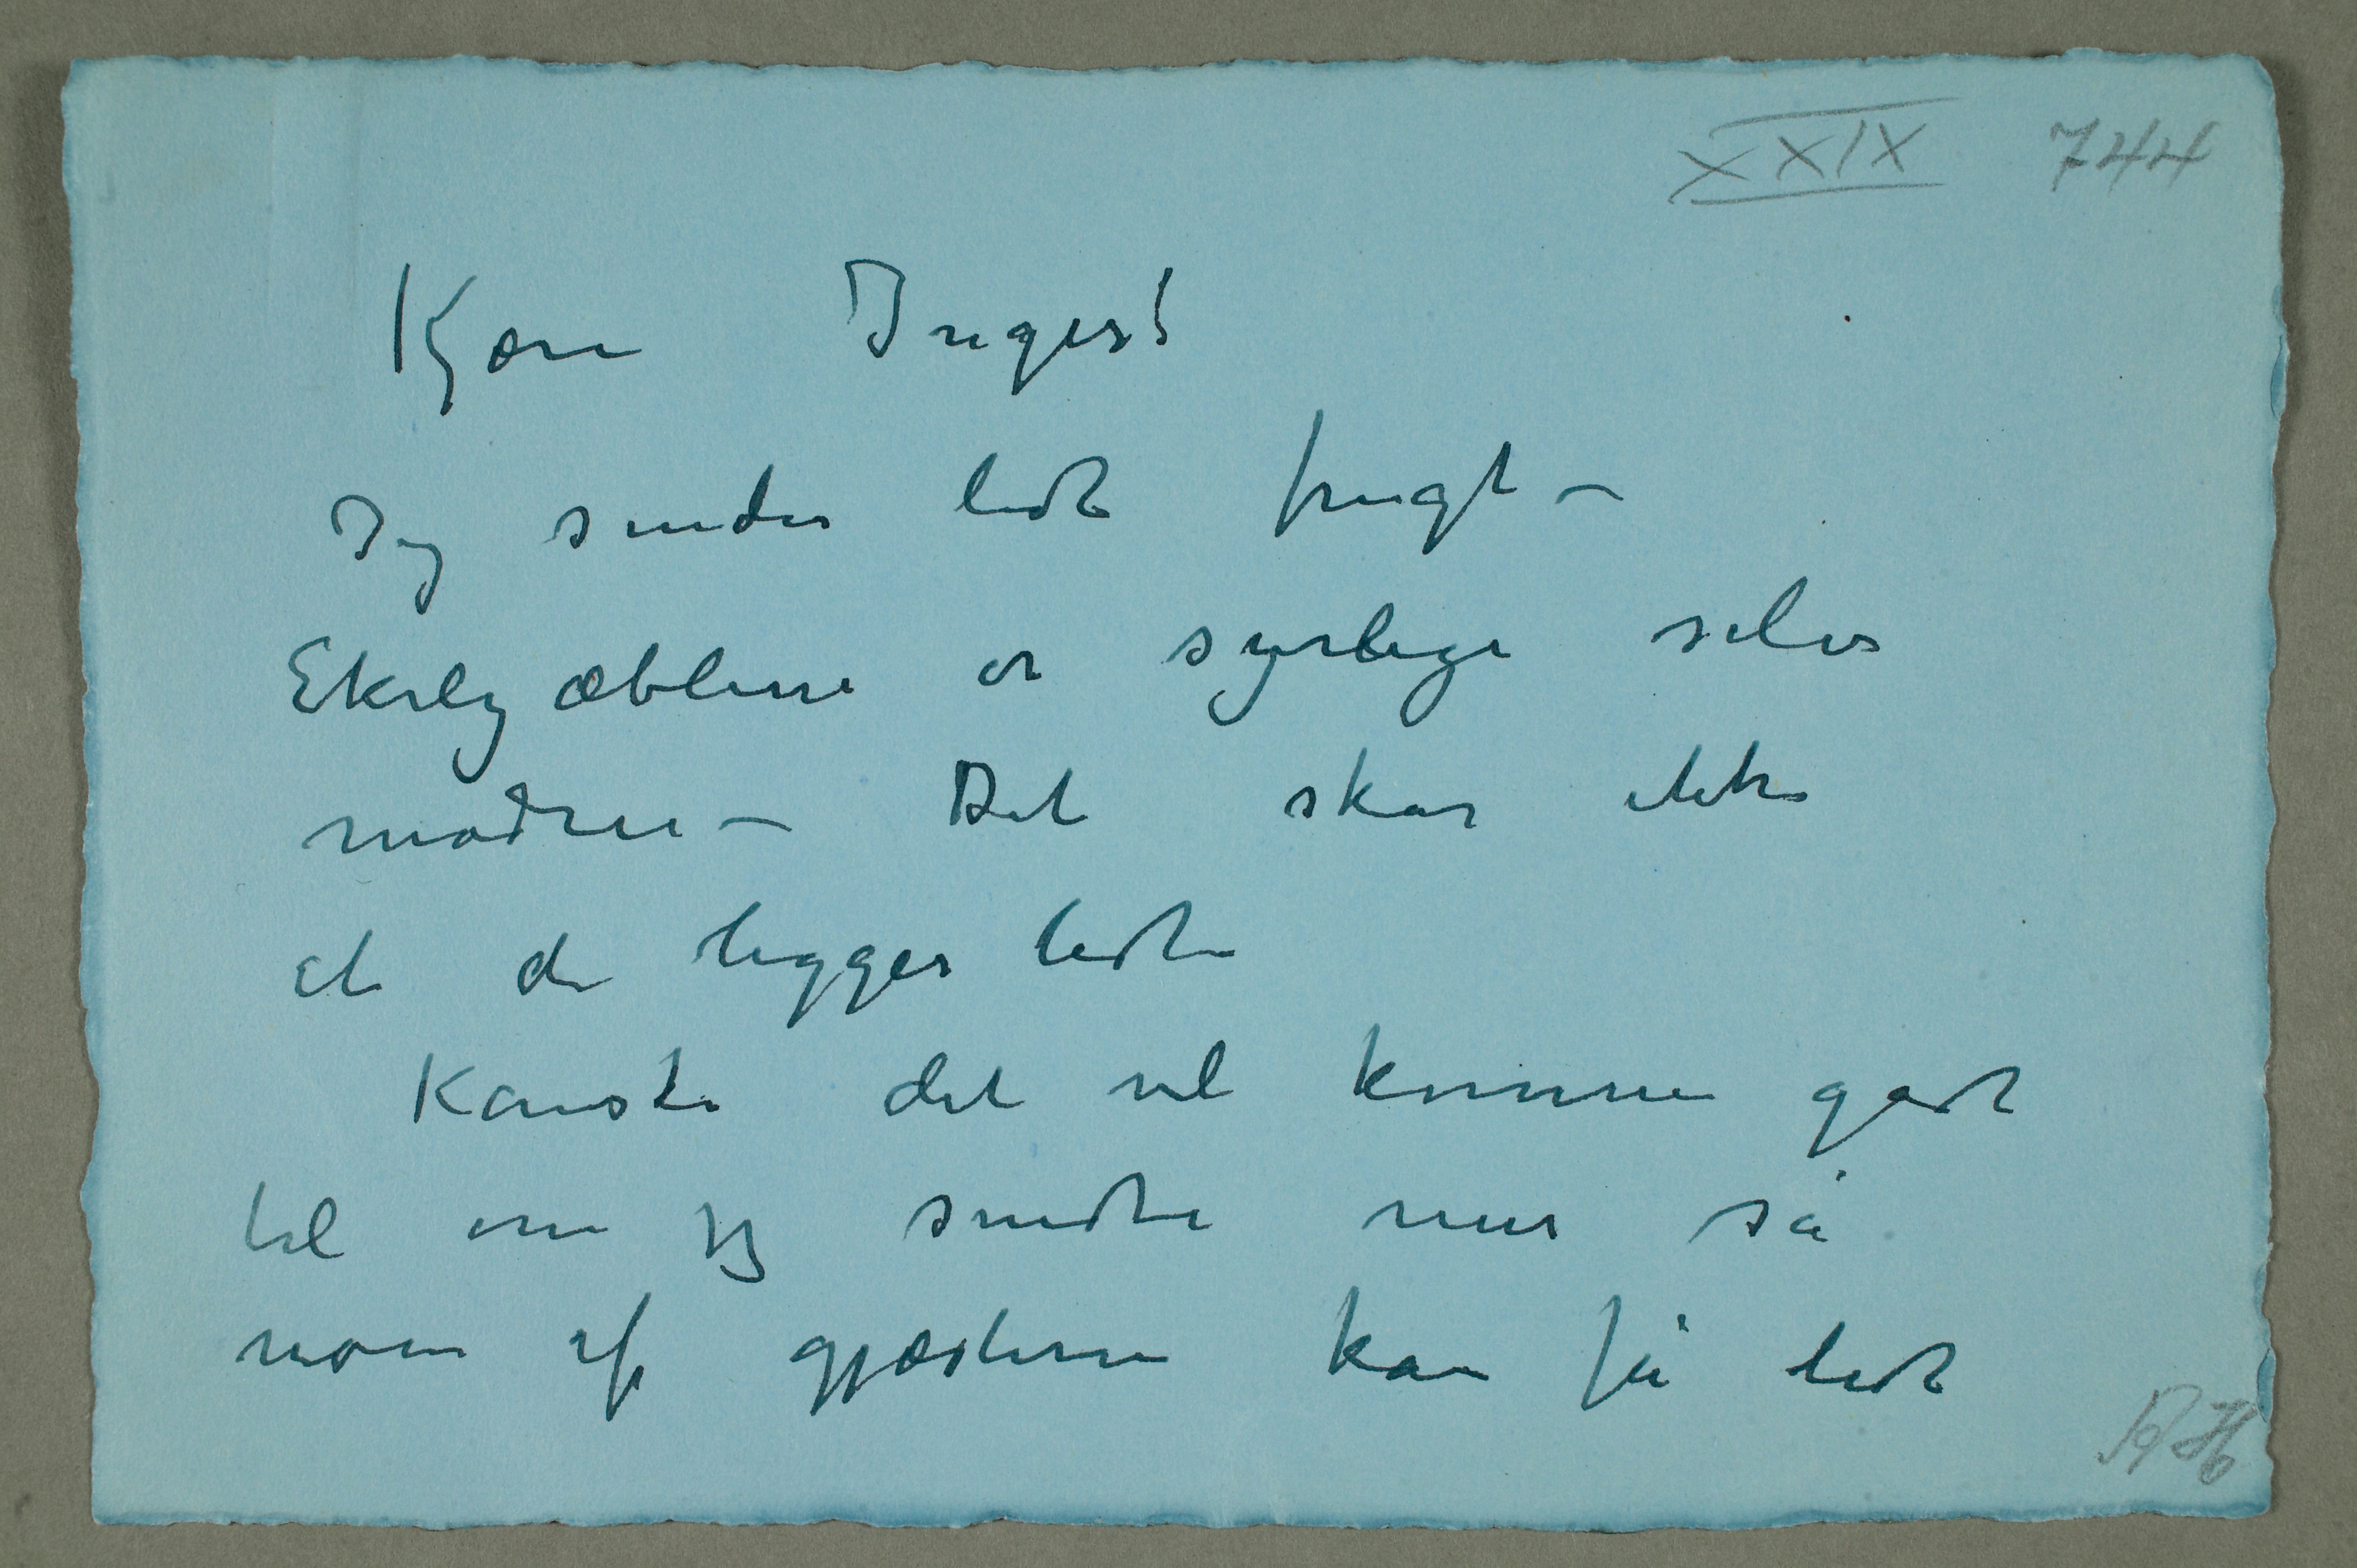 XXIX 744
Kjære Inger!
Jeg sender lidt frugt –
Ekelyæblene er syrlige selv
modne – Det skar ikke
at de ligger lidt
Kanske det vil komme godt
til om jeg sendte mer så
noen af gjæsterne kan få lidt